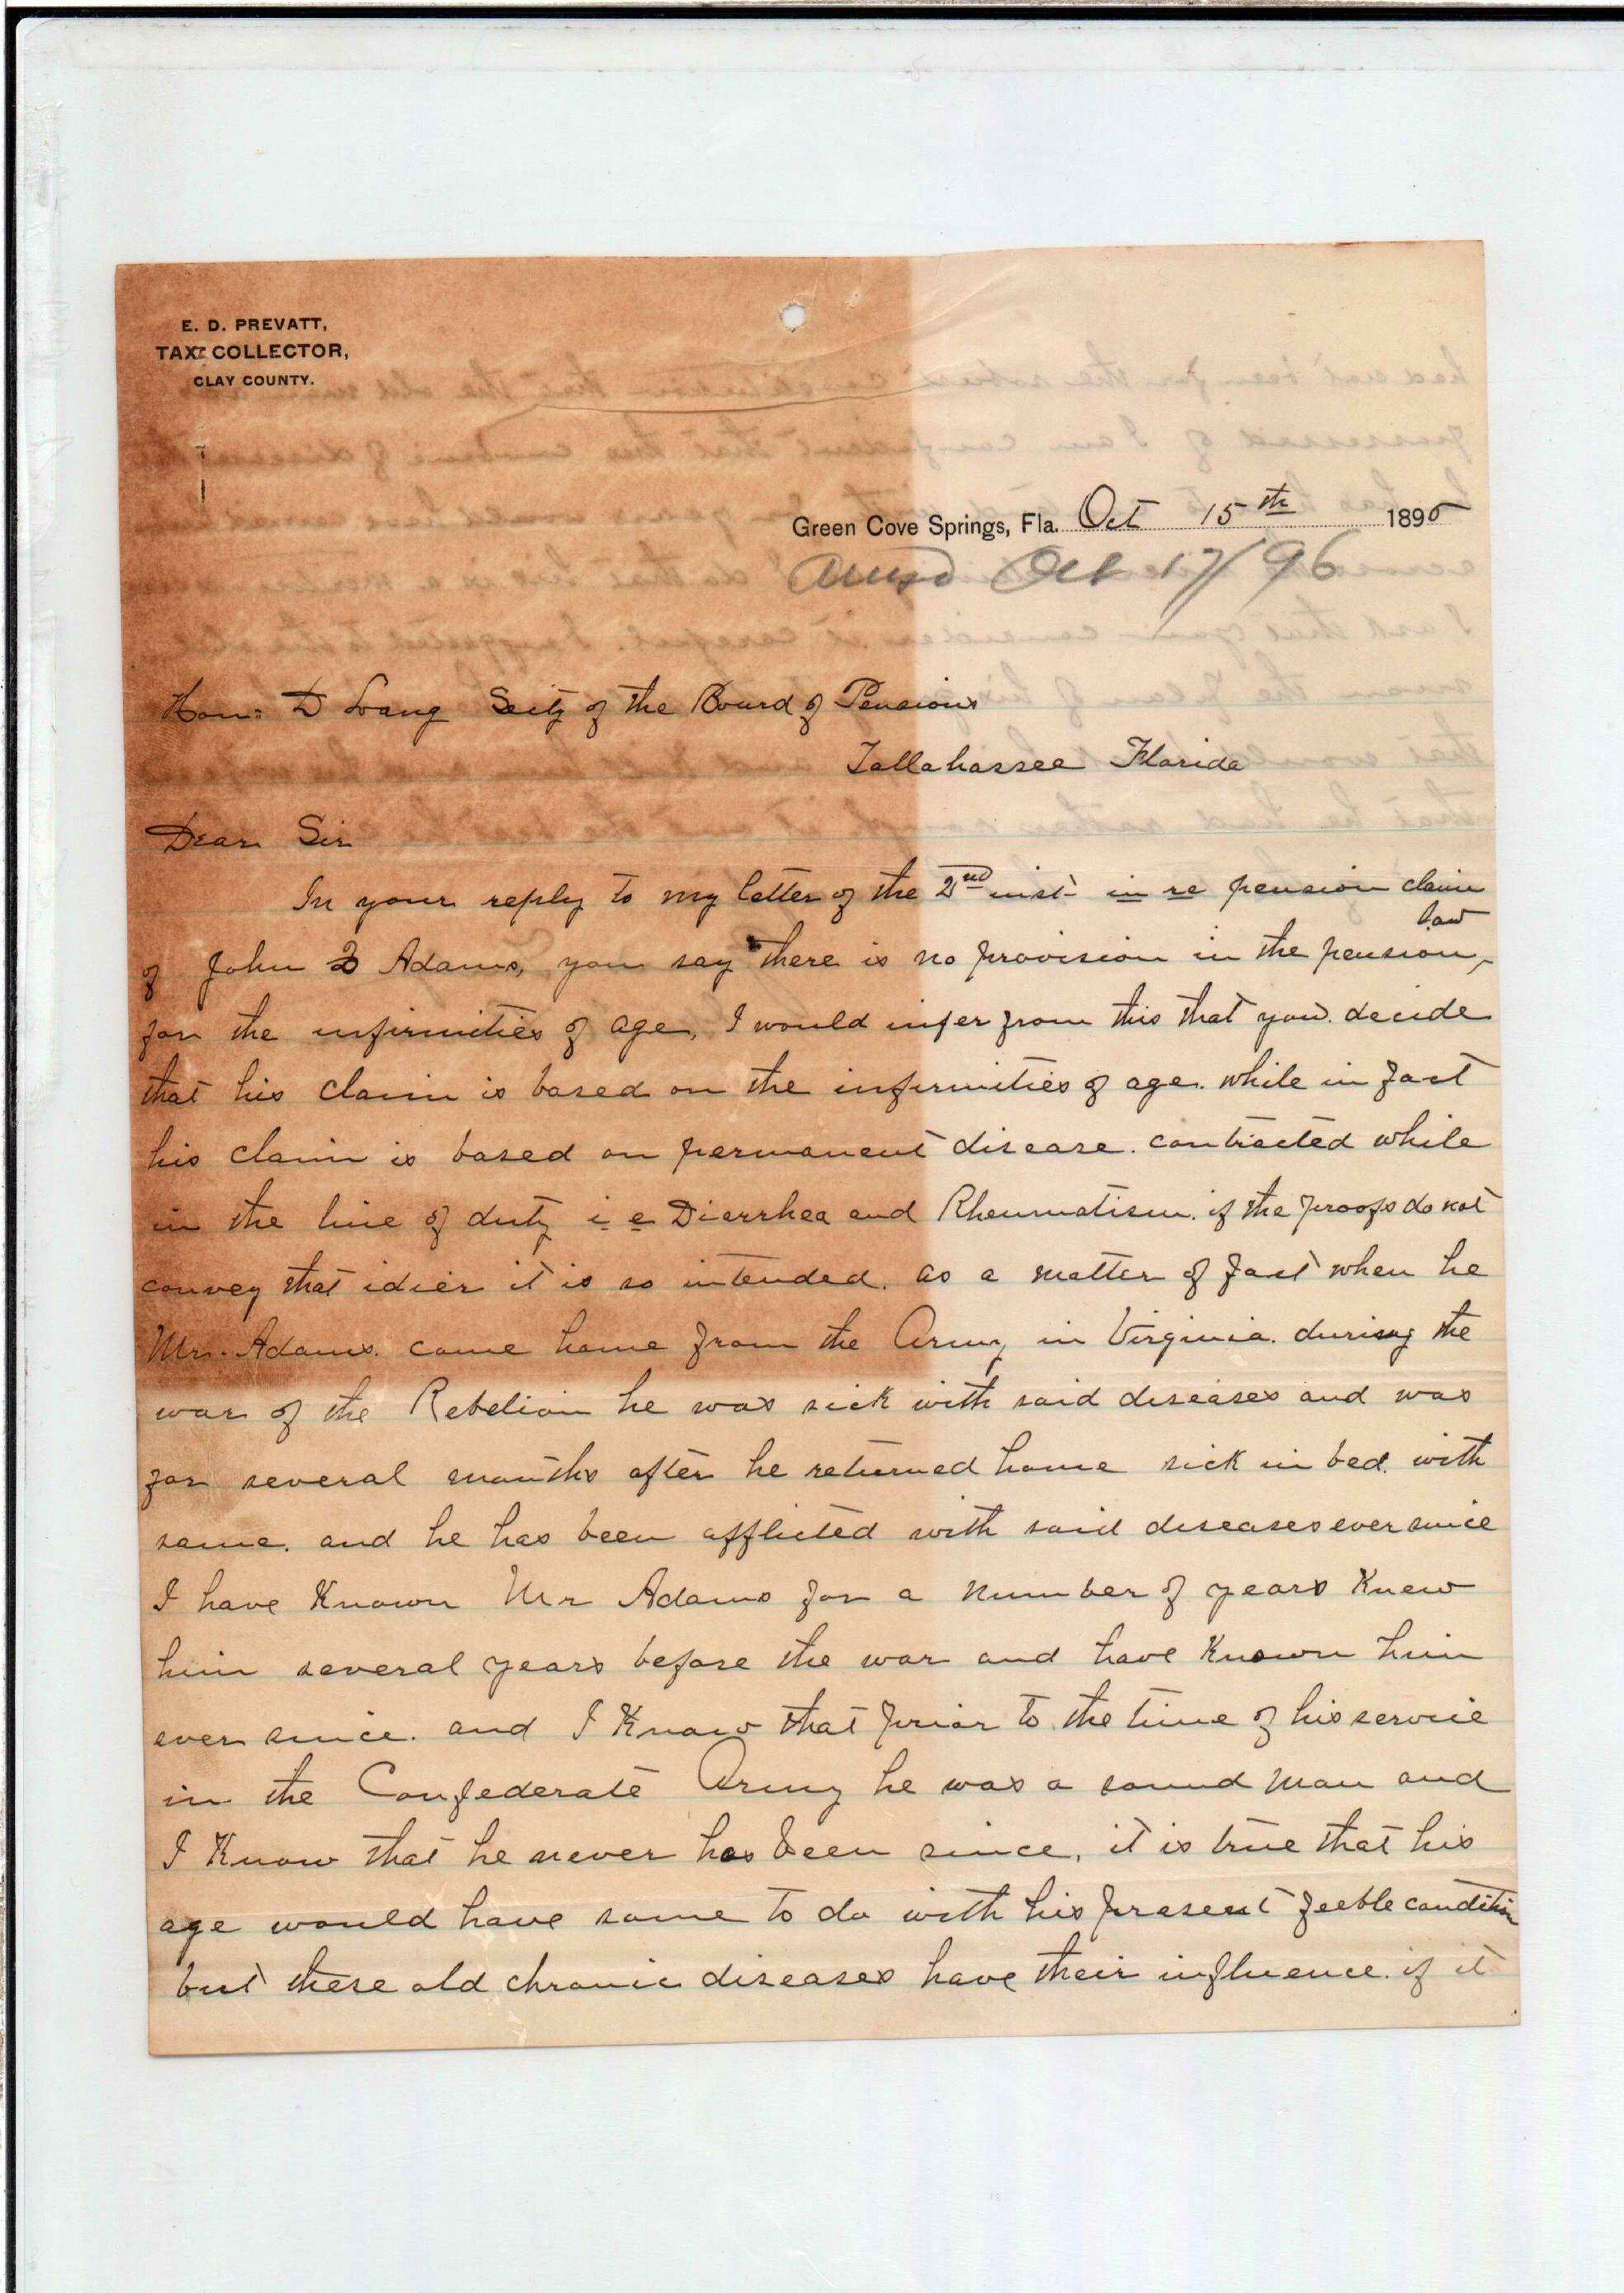 E. D. PREVATT,
TAX COLLECTOR,
CLAY COUNTY.
Green Cove Springs, Fla. Oct 15th 1896
Ansd Oct 17/96
Hon: D Lang Secty of the Board of Pensions
Tallahassee Florida
Dear Sir
In your reply to my letter of the 2nd inst- in re pension claim
law
of John Q Adams, you say "there is no provision in the pension
for the infirmities of age, I would infer from this that you decide
that his claim is based on the infirmities of age. while in fact
his claim is based on permanent disease. contracted while
in the line of duty i e Diarrhea and Rheumatism. if the proofs do not
convey that idier it is so intended. as a matter of fact when he
Mr. Adams. come home from the Army in Virginia. during the
war of the Rebelion he was sick with said diseases and was
for several months after he returned home sick in bed. with
same. and he has been afflicted with said diseases ever since
I have Known Mr Adams for a number of years Knew
him several years before the war and have Known him
ever since. and I Know that prior to the time of his service
in the Confederate Army he was a sound man and
I Know that he never has been since, it is true that his
age would have some to do with his present feeble condition
but these old chronic diseases have their influence. if it